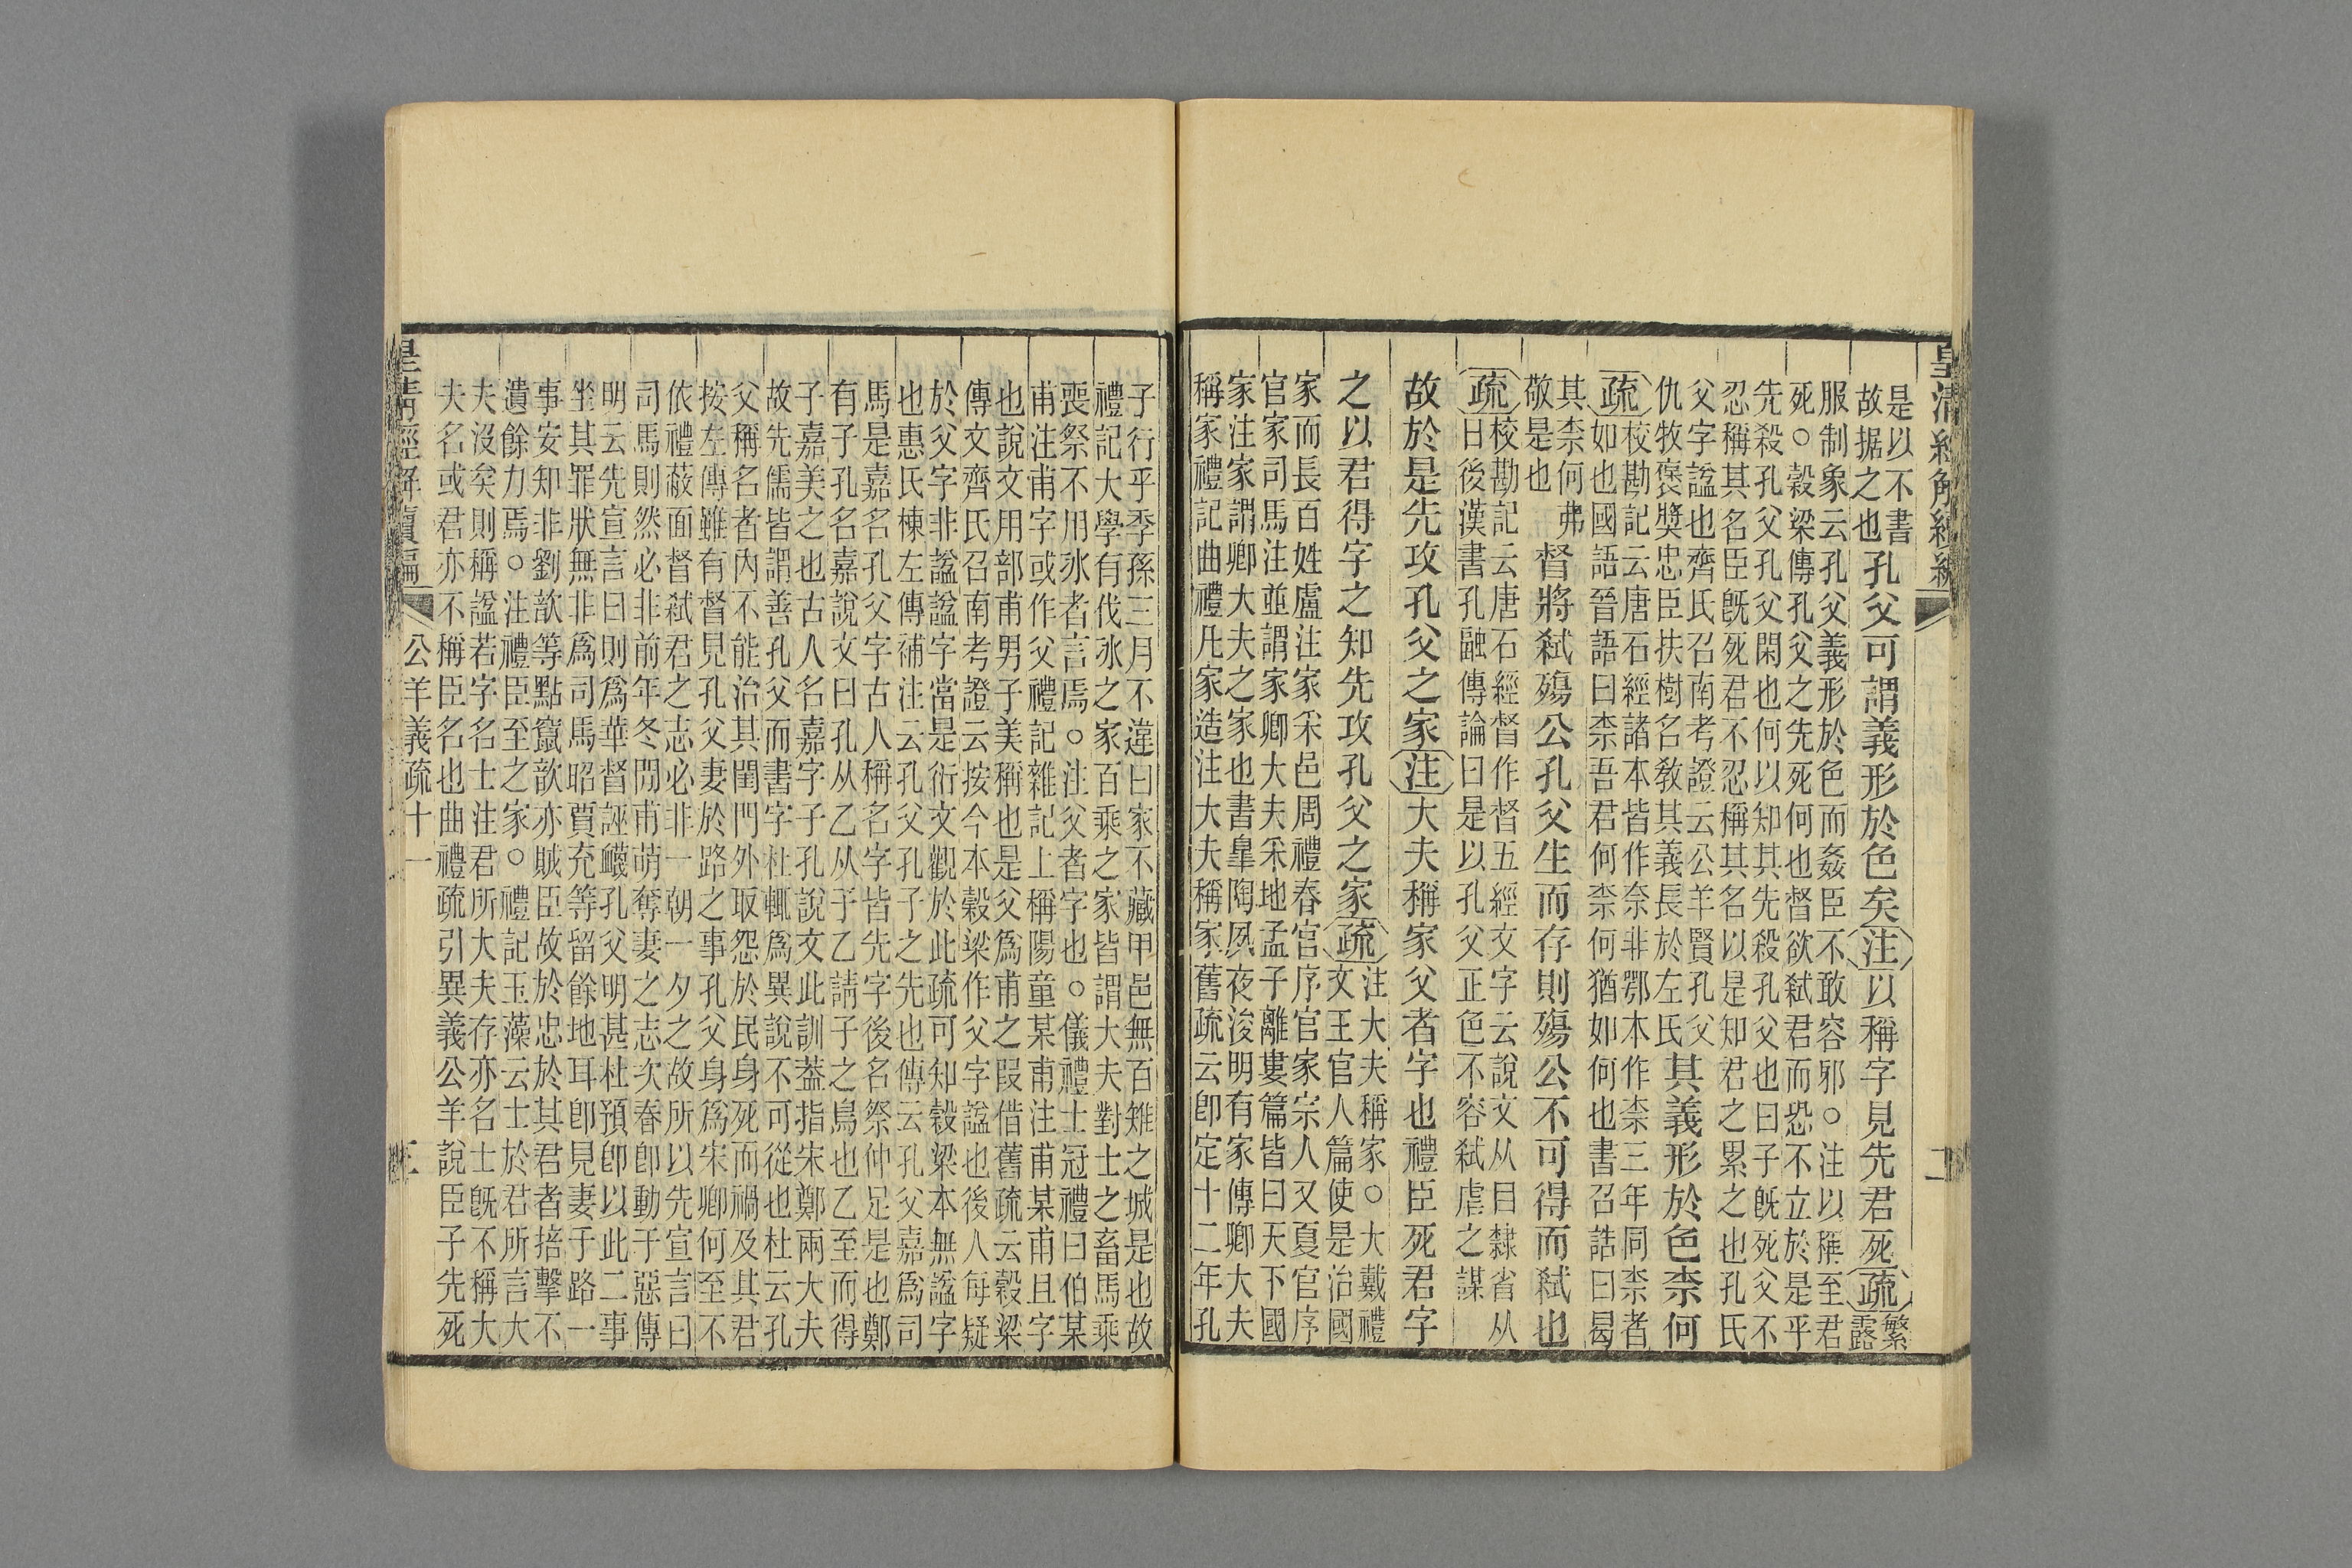 皇清經解續編 二
是以不書
故据之也孔父可謂義形於色矣注以稱字見先君死疏繁
露
服制象云孔父義形於色而姦臣不敢容邪○注以稱至君
死○穀梁傳孔父之先死何也督欲弑君而恐不立於是乎
先殺孔父孔父閑也何以知其先殺孔父也曰子旣死父不
忍稱其名臣旣死君不忍稱其名以是知君之累之也孔氏
父字諡也齊氏召南考證云公羊賢孔父
仇牧褒獎忠臣扶樹名敎其義長於左氏其義形於色柰何
疏校勘記云唐石經諸本皆作奈非鄂本作柰三年同柰者
如也國語晉語曰柰吾君何柰何猶如何也書召誥曰曷
其柰何弗
敬是也督將弑殤公孔父生而存則殤公不可得而弑也
疏校勘記云唐石經督作督五經文字云說文从目隸省从
日後漢書孔融傳論曰是以孔父正色不容弑虐之謀
故於是先攻孔父之家注大夫稱家父者字也禮臣死君字
之以君得字之知先攻孔父之家疏注大夫稱家○大戴禮
文王官人篇使是治國
家而長百姓盧注家采邑周禮春官序官家宗人又夏官序
官家司馬注並謂家卿大夫采地孟子離婁篇皆曰天下國
家注家謂卿大夫之家也書臯陶夙夜浚明有家傳卿大夫
稱家禮記曲禮凡家造注大夫稱家舊疏云卽定十二年孔
子行乎季孫三月不違曰家不藏甲邑無百雉之城是也故
禮記大學有伐冰之家百乘之家皆謂大夫對士之畜馬乘
喪祭不用冰者言焉○注父者字也○儀禮士冠禮曰伯某
甫注甫字或作父禮記雜記上稱陽童某甫注甫某甫且字
也說文用部甫男子美稱也是父爲甫之叚借舊疏云穀梁
傳文齊氏召南考證云按今本穀梁作父字諡也後人每疑
於父字非諡諡字當是衍文觀於此疏可知穀梁本無諡字
也惠氏棟左傳補注云孔父孔子之先也傳云孔父嘉爲司
馬是嘉名孔父字古人稱名字皆先字後名祭仲足是也鄭
有子孔名嘉說文曰孔从乙从子乙請子之鳥也乙至而得
子嘉美之也古人名嘉字子孔說文此訓葢指宋鄭兩大夫
故先儒皆謂善孔父而書字杜輒爲異說不可從也杜云孔
父稱名者內不能治其閨門外取怨於民身死而禍及其君
按左傳雖有督見孔父妻於路之事孔父身爲宋卿何至不
依禮蔽面督弑君之志必非一朝一夕之故所以先宣言曰
司馬則然必非前年冬閒甫萌奪妻之志次春卽動于惡傳
明云先宣言曰則爲華督誣衊孔父明甚杜預卽以此二事
坐其罪狀無非爲司馬昭賈充等留餘地耳卽見妻于路一
事安知非劉歆等點竄歆亦賊臣故於忠於其君者掊擊不
遺餘力焉○注禮臣至之家○禮記玉藻云士於君所言大
夫沒矣則稱諡若字名士注君所大夫存亦名士旣不稱大
夫名或君亦不稱臣名也曲禮疏引異義公羊說臣子先死
皇清經解續編 公羊義疏十一 三